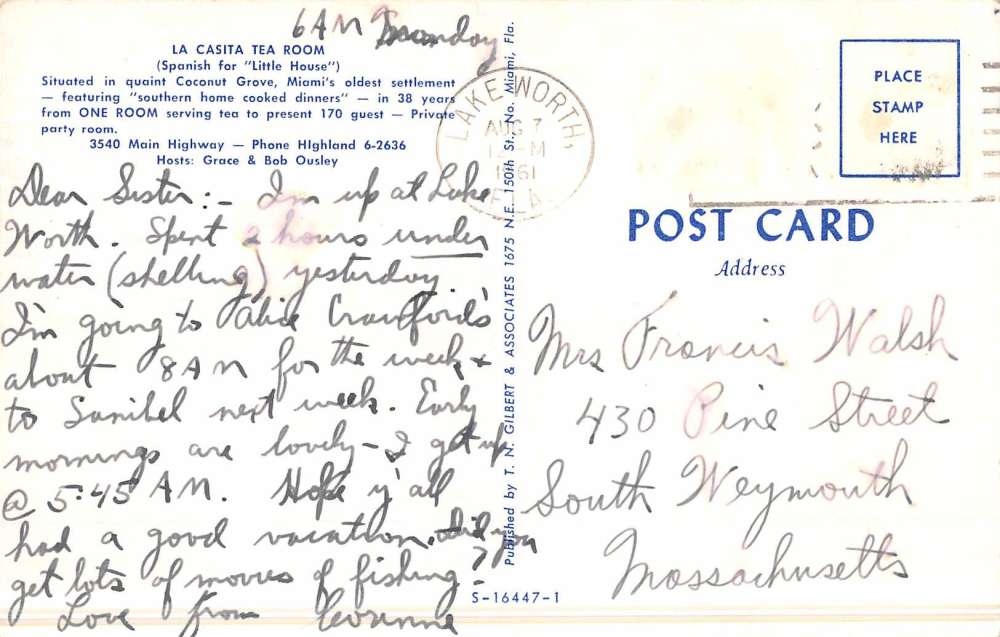 6AM Monday
LA CASITA TEA ROOM
(Spanish for "Little House")
Situated in quaint Coconut Grove, Miami's oldest settlement
— featuring "southern home cooked dinners" — in 38 years
from ONE ROOM serving tea to present 170 guest — Private
party room.
3540 Main Highway — Phone HIghland 6-2636
Hosts: Grace & Bob Ousley
Dear Sister:- I'm up at Lake
Worth. Spent 2 hours under
water (shelling) yesterday
I'm going to Alice Crawford's
about 8AM for the week +
to Sanibel next week. Early
mornings are lovely - I get up
@ 5:45 AM. Hope y'all
had a good vacation. Did you
get lots of movies of fishing?
Love from Corinne
Published by T. N. GILBERT & ASSOCIATES 1675 N.E. 150th St., No. Miami, Fla.
S-16447-1
LAKE WORTH,
AUG 7
1961
FLA.
PLACE
STAMP
HERE
POST CARD
Address
Mrs Francis Walsh
430 Pine Street
South Weymouth
Massachusetts